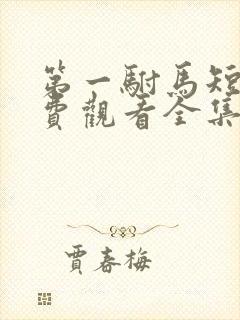 第一駙馬短
費觀看全集
賈春梅